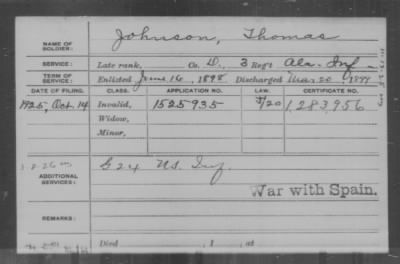 NAME OF SOLDIER: Johnson, Thomas
SERVICE: Late rank, Co. D, 3 Reg't Ala. Inf
TERM OF SERVICE: Enlisted June 16, 1898 Discharged Mar 20, 1899
DATE OF FILING. CLASS. APPLICATION NO. LAW. CERTIFICATE NO.
1925, Oct. 14 Invalid, 1525935 5/20 1,283,956
Widow,
Minor,
ADDITIONAL SERVICES: G 24 US. Inf.
War with Spain.
REMARKS:
Died , 1 , at